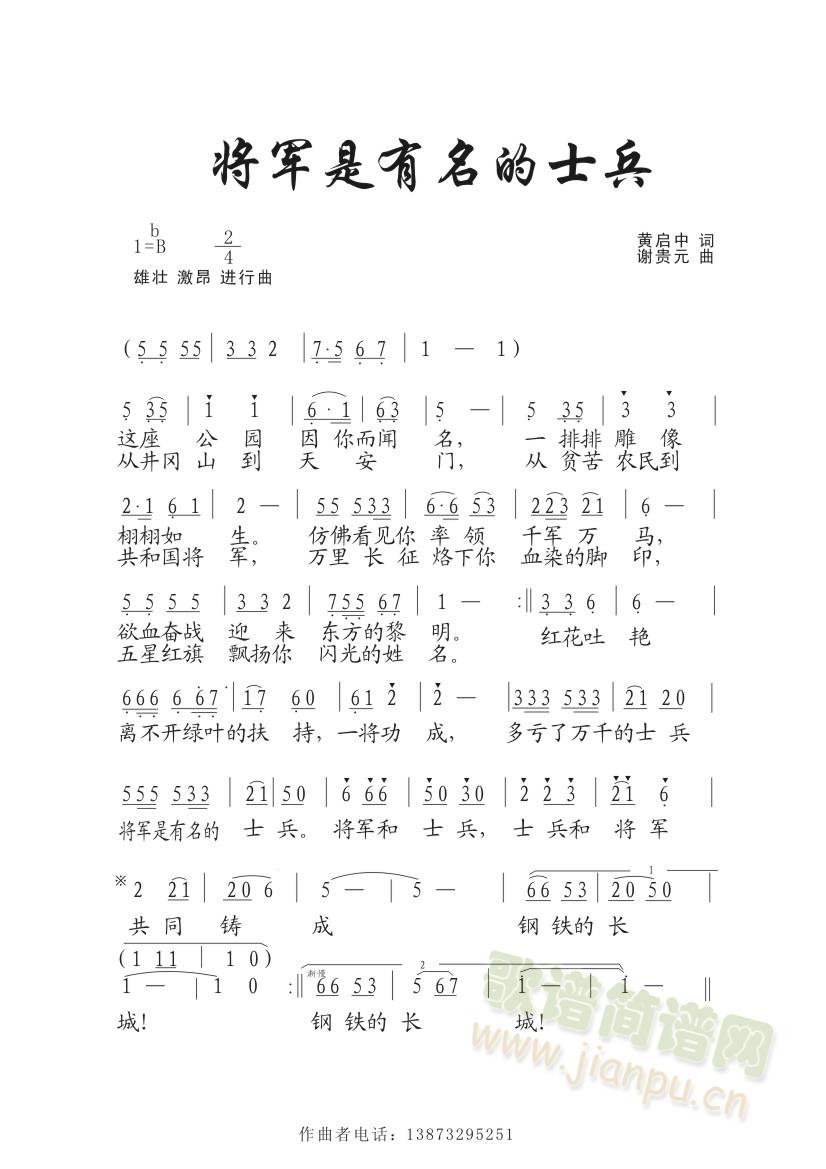 将军是有名的士兵
1=bB 2/4
黄启中 词
谢贵元 曲
雄壮 激昂 进行曲
(5 5 55 | 3 3 2 | 7·5 6 7 | 1 — 1)
5 35 | 1 1 | 6·1 | 63 | 5 — | 5 35 | 3 3 |
这座 公 园 因 你而闻 名， 一 排排 雕 像
从井冈 山 到 天 安 门， 从 贫苦 农民到
2·1 6 1 | 2 — | 55 533 | 6·6 53 | 223 21 | 6 — |
栩栩如 生。 仿佛看见你 率 领 千军 万 马，
共和国将 军， 万里 长 征 烙下你 血染的脚 印，
5 5 5 5 | 3 3 2 | 755 67 | 1 — :‖ 3 3 6 | 6 — |
欲血奋战 迎 来 东方的黎 明。 红花吐 艳
五星红旗 飘扬你 闪光的姓 名。
666 6 67 | 17 60 | 61 2 | 2 — | 333 533 | 21 20 |
离不开绿叶的扶 持，一将功 成， 多亏了万千的士 兵
555 533 | 21 50 | 6 66 | 50 30 | 2 2 3 | 21 6 |
将军是有名的 士 兵。 将军和 士 兵， 士 兵和 将 军
※ 2 21 | 20 6 | 5 — | 5 — | 66 53 | 20 50 1
共 同 铸 成 钢 铁的 长
(1 11 | 1 0)
1 — | 1 0 :‖ 渐慢 66 53 | 2 5 67 | 1 — | 1 — ‖
城! 钢 铁的 长 城!
歌谱简谱网
www.jianpu.cn
作曲者电话：13873295251